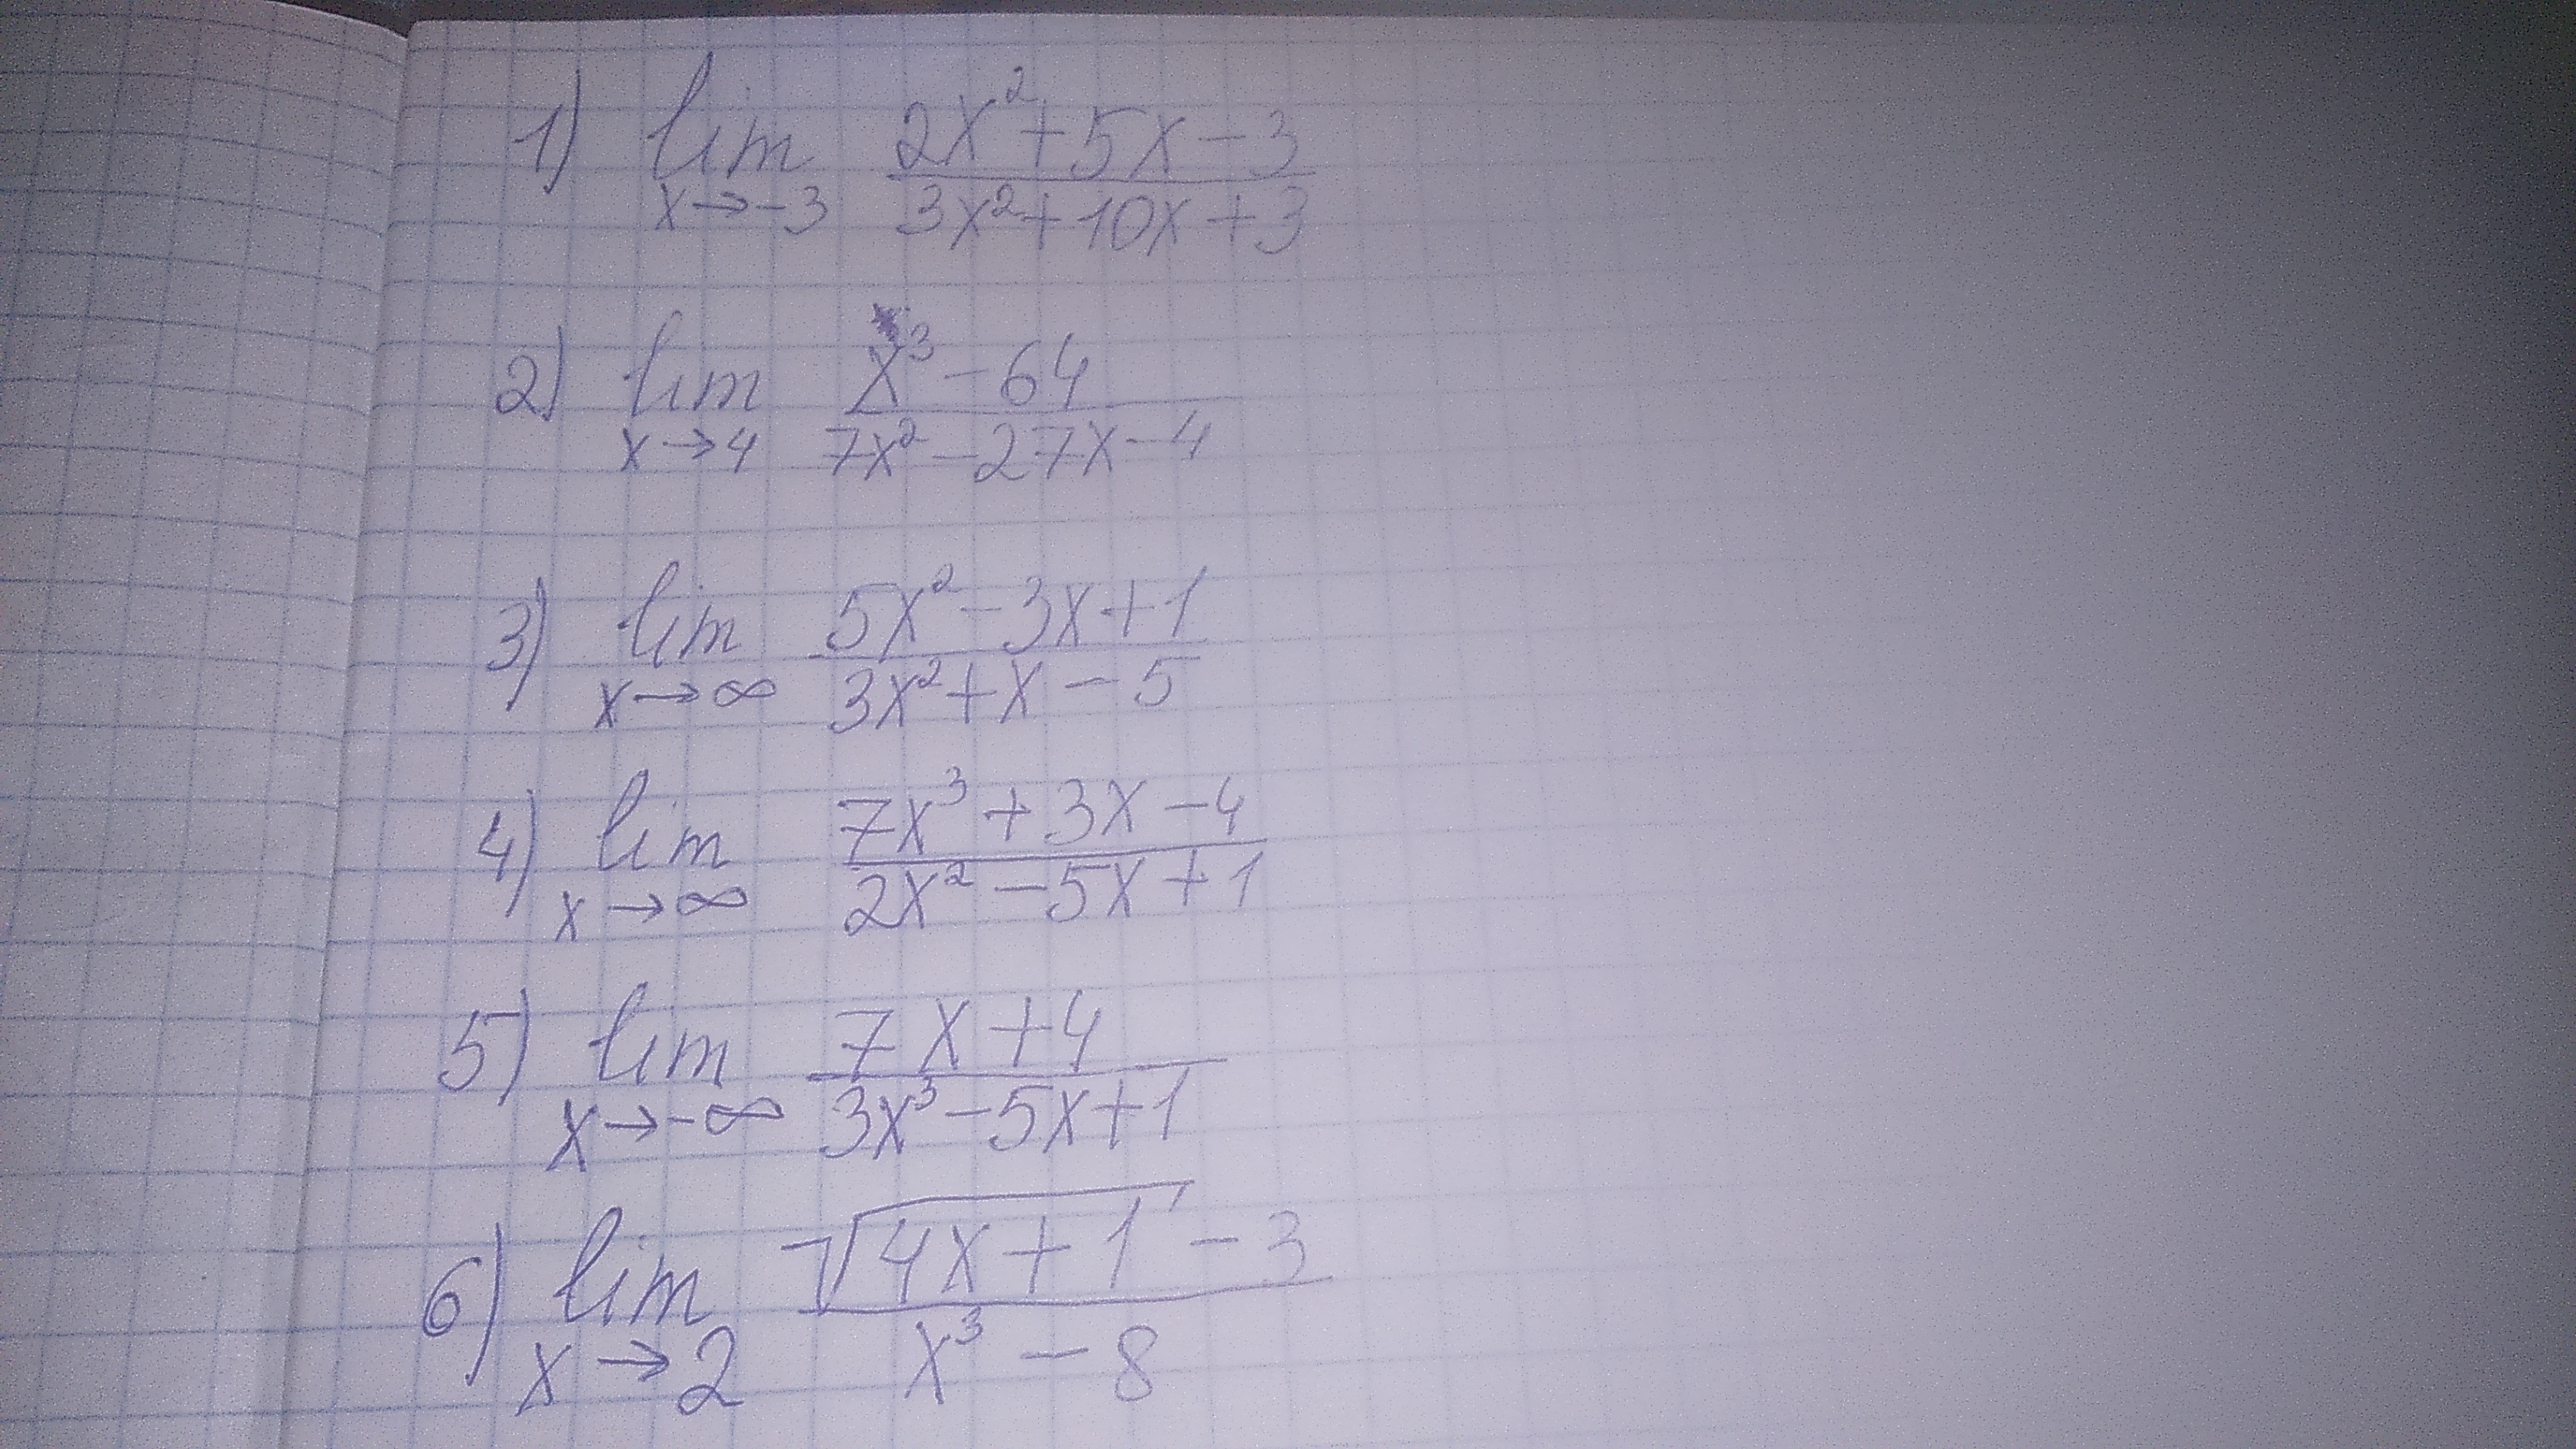 1) lim x→-3 (2x²+5x-3)/(3x²+10x+3)
2) lim x→4 (x³-64)/(7x²-27x-4)
3) lim x→∞ (5x²-3x+1)/(3x²+x-5)
4) lim x→∞ (7x³+3x-4)/(2x²-5x+1)
5) lim x→-∞ (7x+4)/(3x³-5x+1)
6) lim x→2 (√(4x+1)-3)/(x³-8)